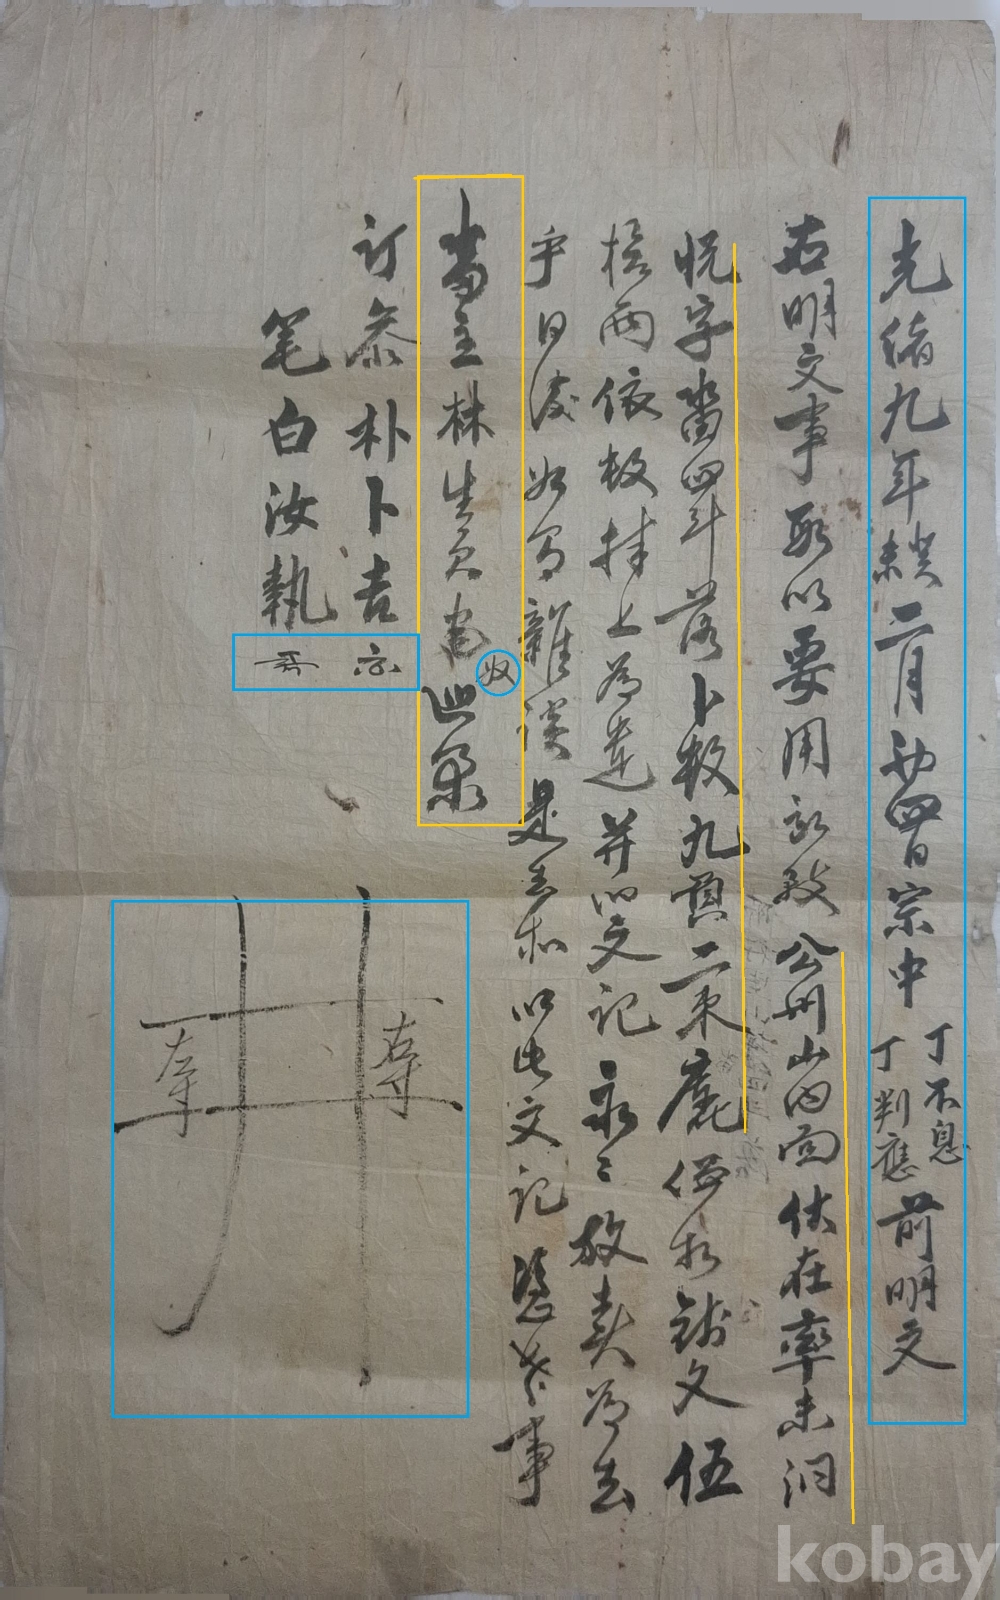 光緖九年癸未二月初四日宗中丁不息丁判應前明文
右明文事段以要用所致公州山內面伏在率未洞
悅字畓四斗落卜數九負二束廤價折錢文伍
拾兩依數捧上爲遣幷以文記永永放賣爲去
乎日後如有雜談是去等以此文記憑考事
畓主林生員宅奴
訂參朴卜吉
笔白汝執
右手
左手
kobay